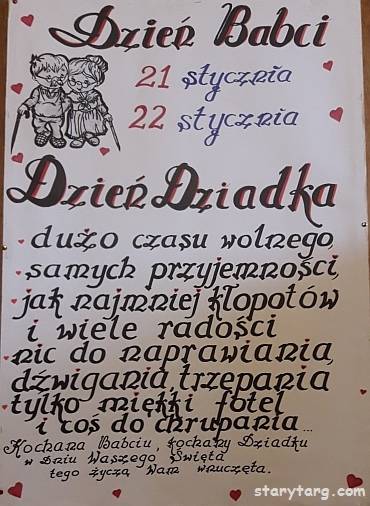 Dzień Babci
21 stycznia
22 stycznia
Dzień Dziadka
dużo czasu wolnego,
samych przyjemności,
jak najmniej kłopotów
i wiele radości
nic do naprawiania,
dźwigania, trzepania
tylko miękki fotel
i coś do chrupania...
Kochana Babciu, kochany Dziadku
w Dniu Waszego Święta
tego życzą Wam wnuczęta.
starytarg.com